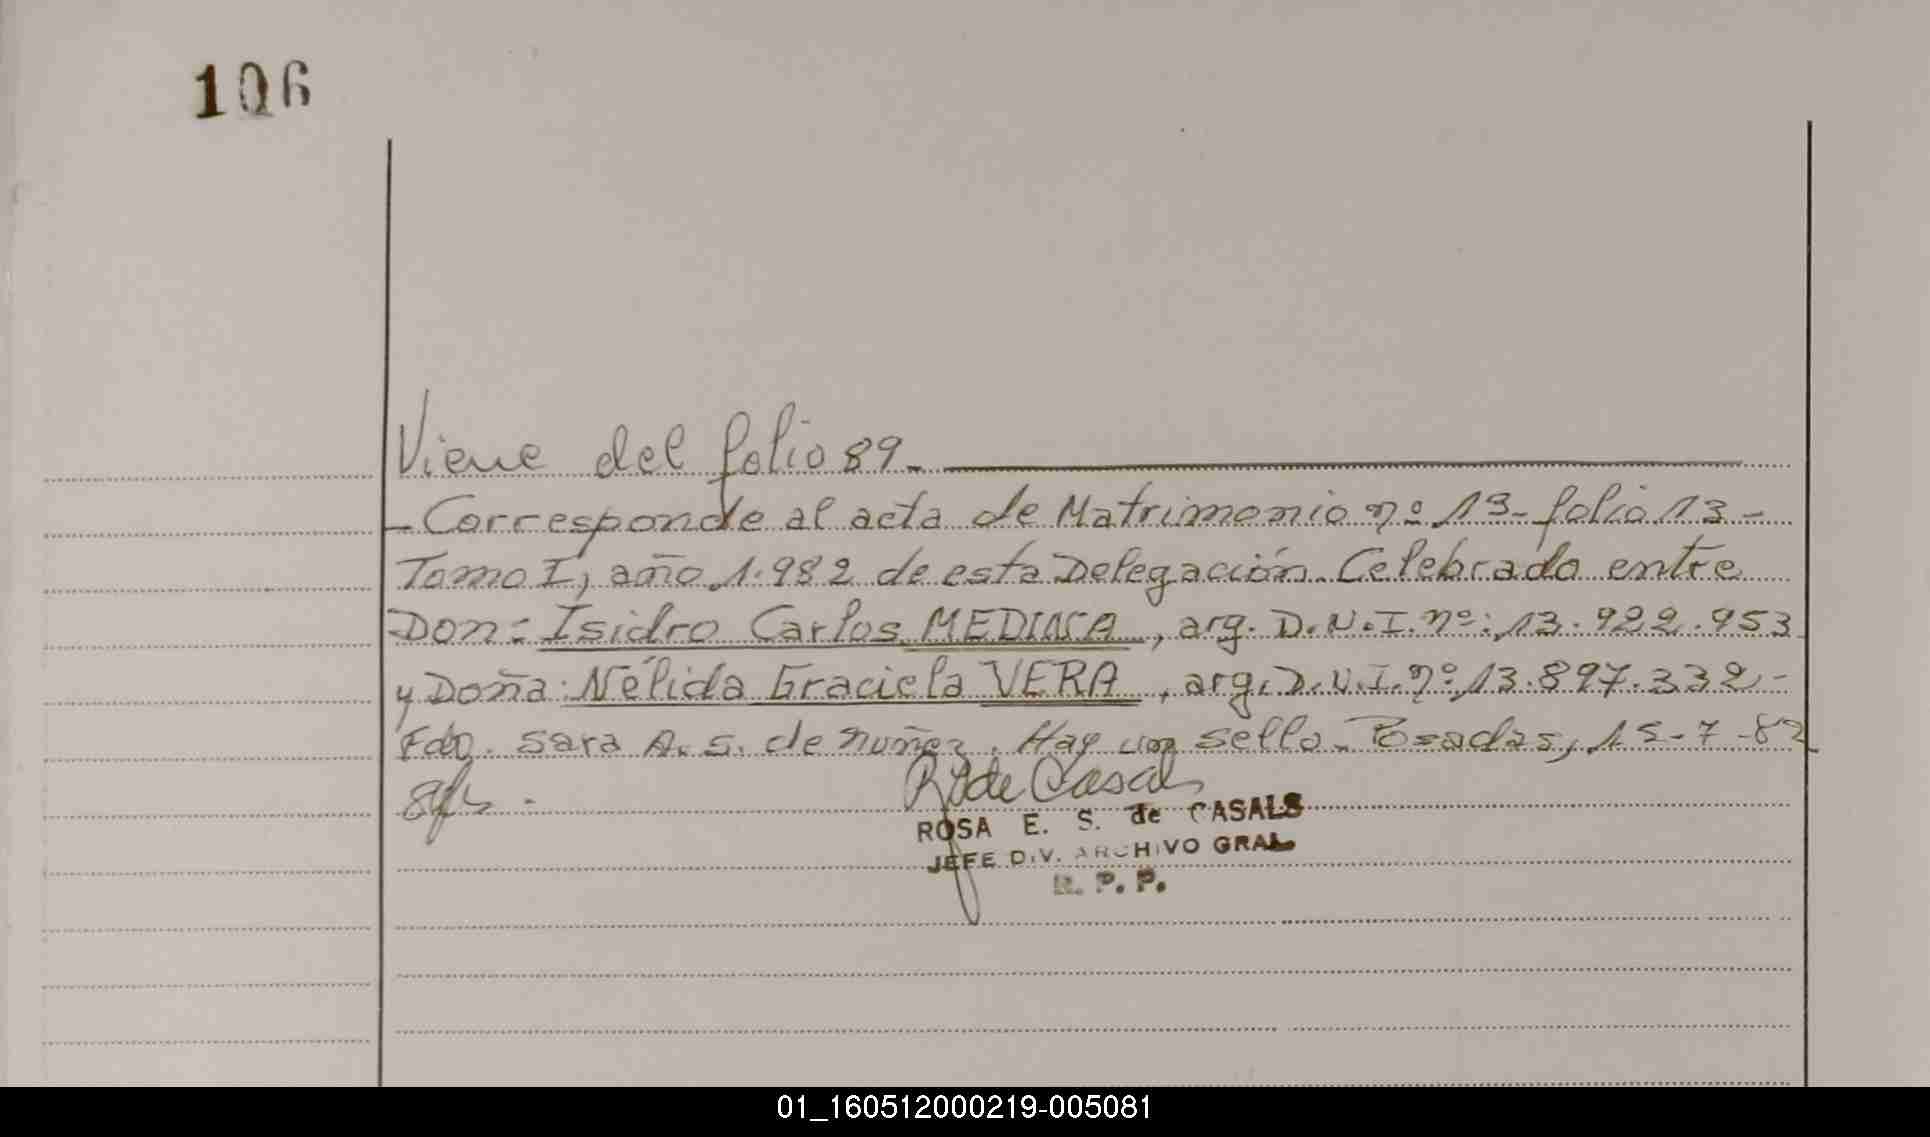 106
Viene del folio 89.
- Corresponde al acta de Matrimonio nº 13- folio 13-
Tomo I, año 1.982 de esta Delegación. Celebrado entre
Don: Isidro Carlos MEDINA, arg. D.N.I. nº: 13.922.953
y Doña: Nélida Graciela VERA, arg. D.N.I. nº 13.897.332-
Fdo. Sara A. S. de Nuñez. Hay un sello. Posadas, 15-7-82
R de Casals
ROSA E. S. de CASALS
JEFE DIV. ARCHIVO GRAL
R. P. P.
01_160512000219-005081